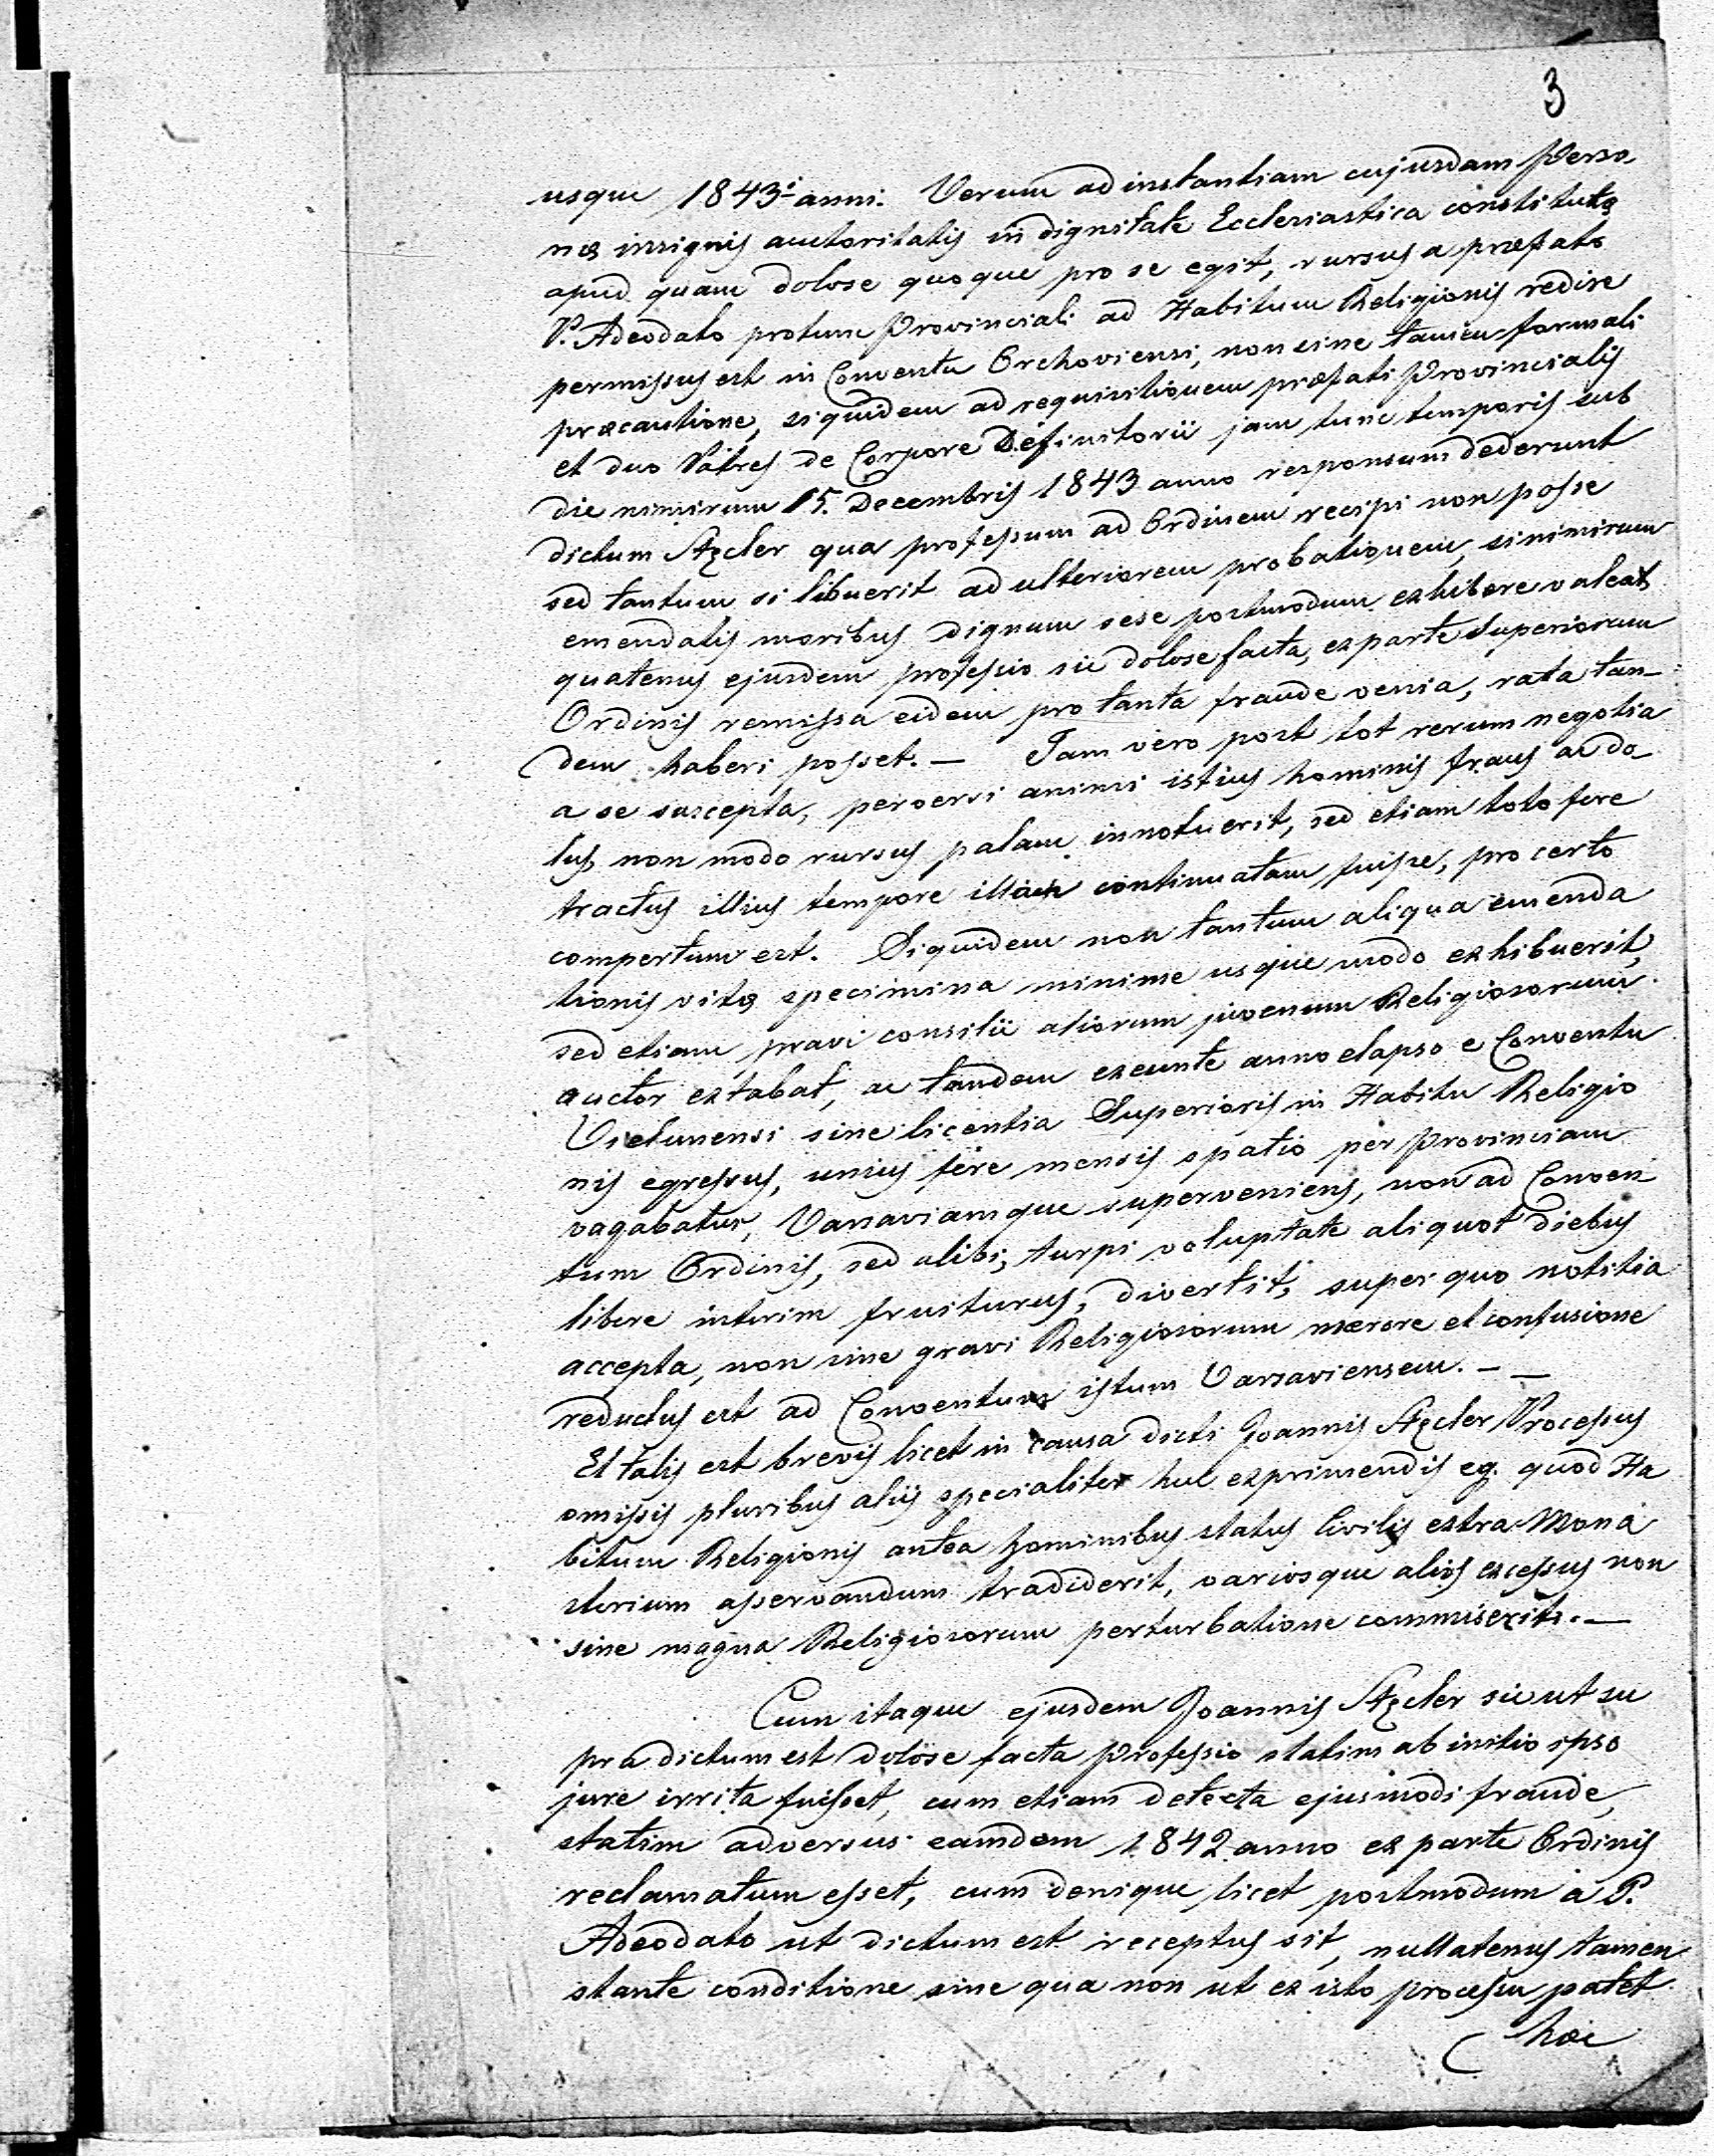 3
usque 1843i anni. Verum ad instantiam cujusdam Perso-
næ insignis auctoritatis in dignitate Ecclesiastica constitutæ
apud quam dolose quoque pro se egit, rursus a præfato
P. Adeodato protunc Provinciali ad Habitum Religionis redire
permissus est in Conventu Orchoviensi, non sine tamen formali
præcautione, siquidem ad requisitionem præfati Provincialis
et duo Patres de Corpore Definitorii jam tunc temporis sub
die nimirum 15. Decembris 1843 anno responsum dederunt
dictum Azcler qua professum ad Ordinem recipi non posse
sed tantum si libuerit ad ulteriorem probationem, si nimirum
emendatis moribus dignum sese postmodum exhibere valeat,
quatenus ejusdem professio sic dolose facta, ex parte Superiorum
Ordinis remissa eidem pro tanta fraude venia, rata tan-
dem haberi posset. — Jam vero post tot rerum negotia
a se suscepta, perversi animi istius hominis fraus ac do-
lus, non modo rursus palam innotuerit, sed etiam toto fere
tractus illius tempore illam continuatam fuisse, pro certo
compertum est. Siquidem non tantum aliqua emenda
tionis vitæ specimina minime usque modo exhibuerit,
sed etiam pravi consilii aliorum juvenum Religiosorum
auctor extabat, ac tandem exeunte anno elapso e Conventu
Vielunensi sine licentia Superioris in Habitu Religio
nis egressus, unius fere mensis spatio per Provinciam
vagabatur, Varsaviamque superveniens, non ad Conven
tum Ordinis, sed alibi, turpi voluptate aliquot diebus
libere interim fruiturus, divertit, super quo notitia
accepta, non sine gravi Religiosorum mærore et confusione
reductus est ad Conventum istum Varsaviensem. — —
Et talis est brevis licet in causa dicti Joannis Azcler Processus
omissis pluribus aliis specialiter huc exprimendis eg. quod Ha
bitum Religionis antea hominibus status Civilis extra Mona
sterium asservandum tradiderit, variosque alios excessus non
sine magna Religiosorum perturbatione commiserit. —
Cum itaque ejusdem Joannis Azcler sicut su
pra dictum est dolose facta Professio statim ab initio ipso
jure irrita fuisset, cum etiam detecta ejusmodi fraude,
statim adversus eamdem 1842 anno ex parte Ordinis
reclamatum esset, cum denique licet postmodum a P.
Adeodato ut dictum est receptus sit, nullatenus tamen
stante conditione sine qua non ut ex isto processu patet
hæc